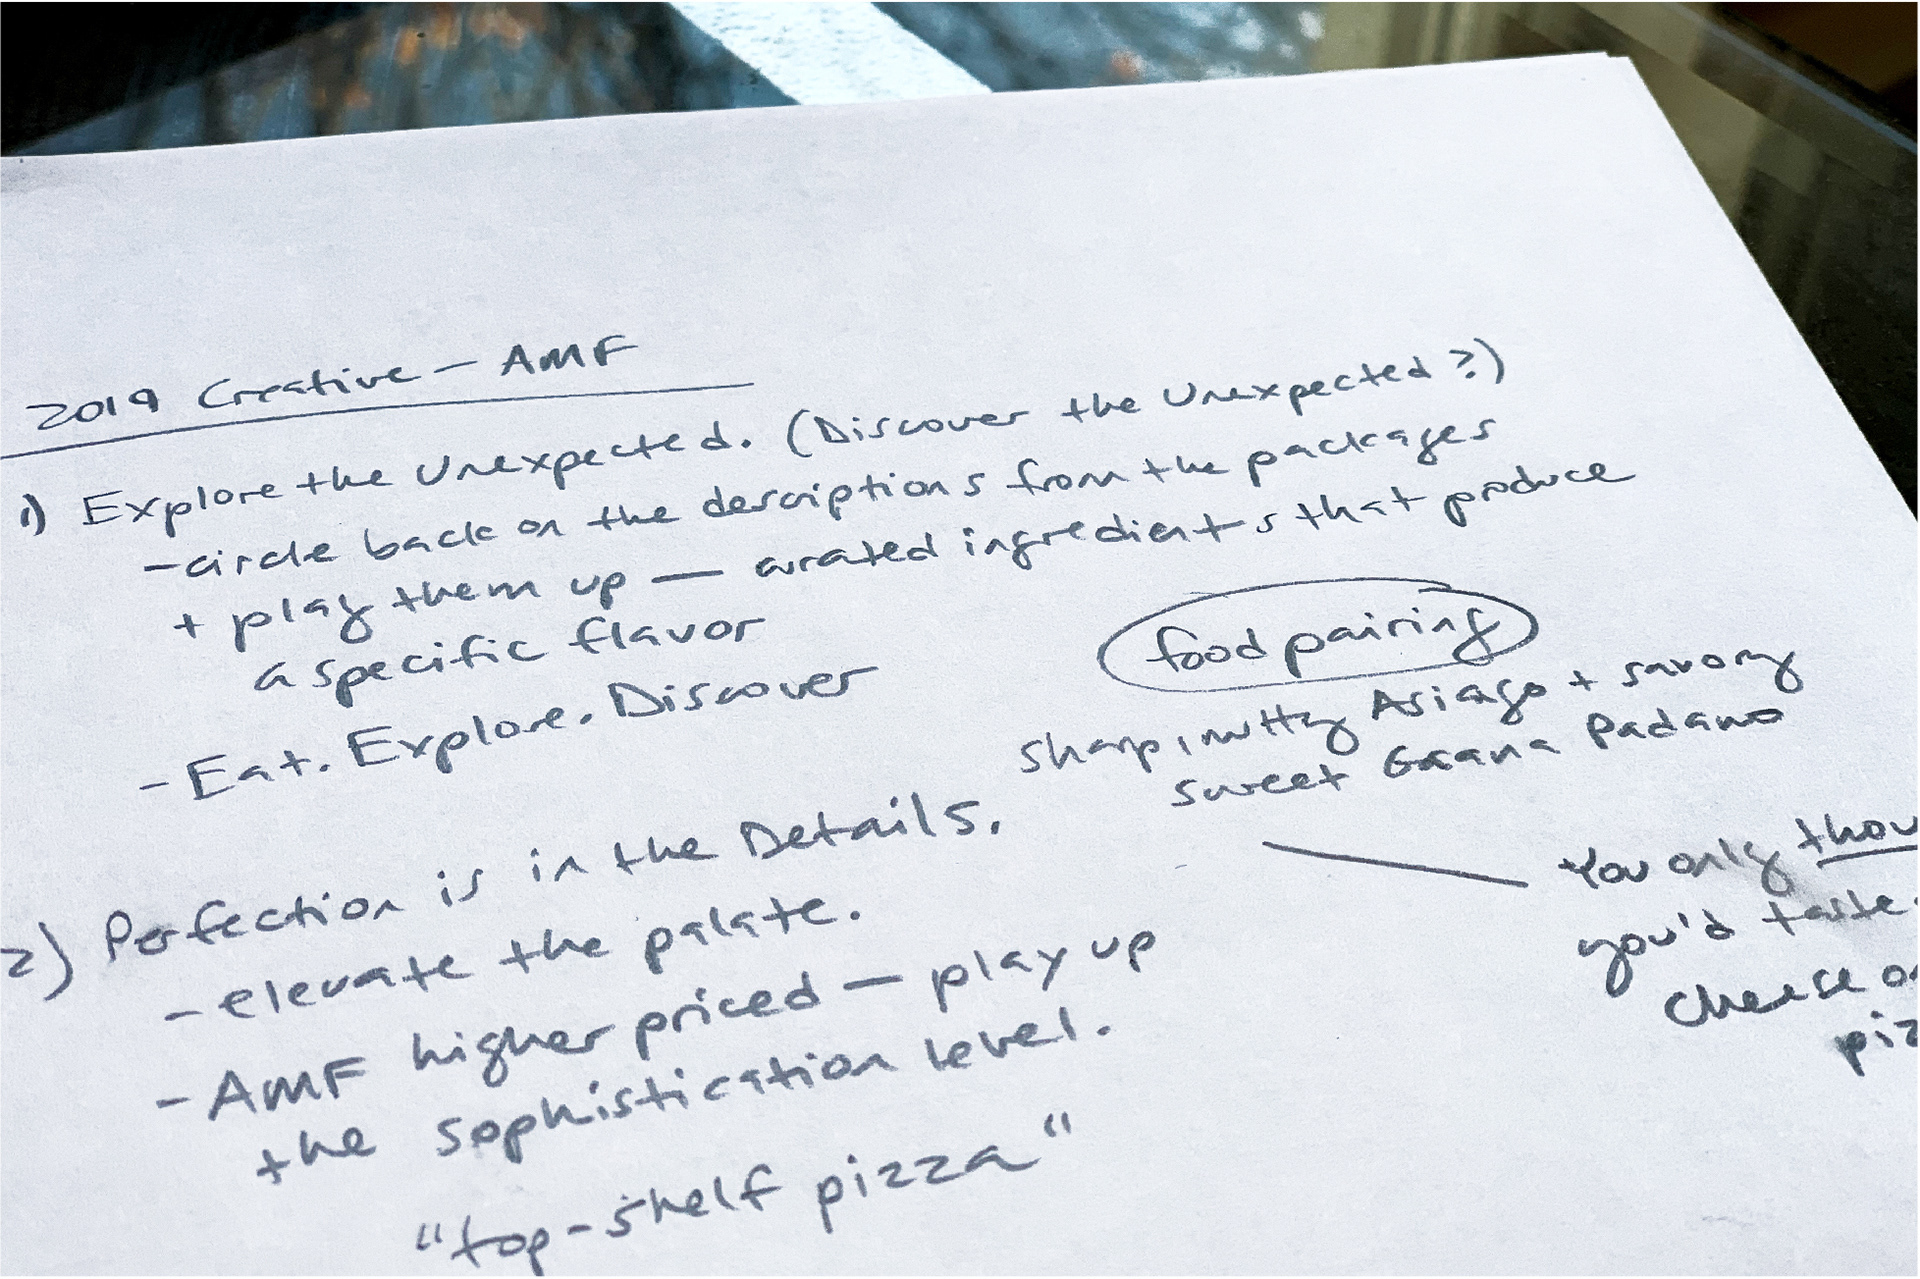 2019 Creative — AMF
1) Explore the Unexpected. (Discover the Unexpected?)
- circle back on the descriptions from the packages
+ play them up — curated ingredients that produce
a specific flavor
- Eat. Explore. Discover
food pairing
sharp, nutty Asiago + savory
sweet Grana Padano
— You only thou
you'd taste
cheese
piz
2) Perfection is in the Details.
- elevate the palate.
- AMF higher priced — play up
the sophistication level.
"top-shelf pizza"